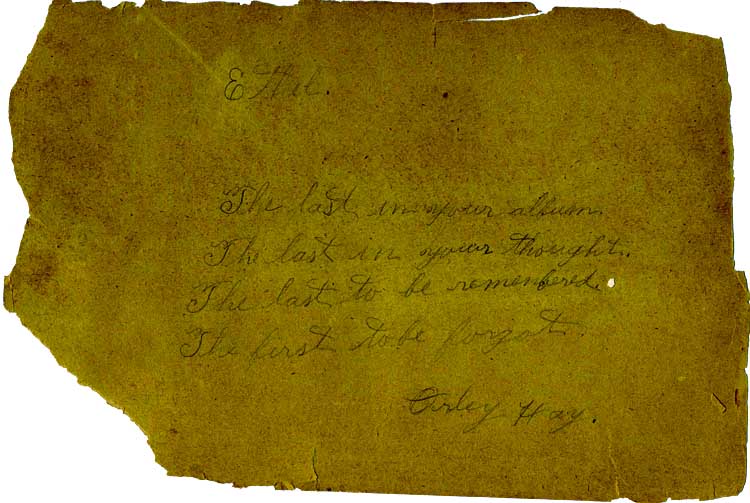 Ethel.
The last in your album.
The last in your thought.
The last to be remembered.
The first to be forgot.
Orley Hay.